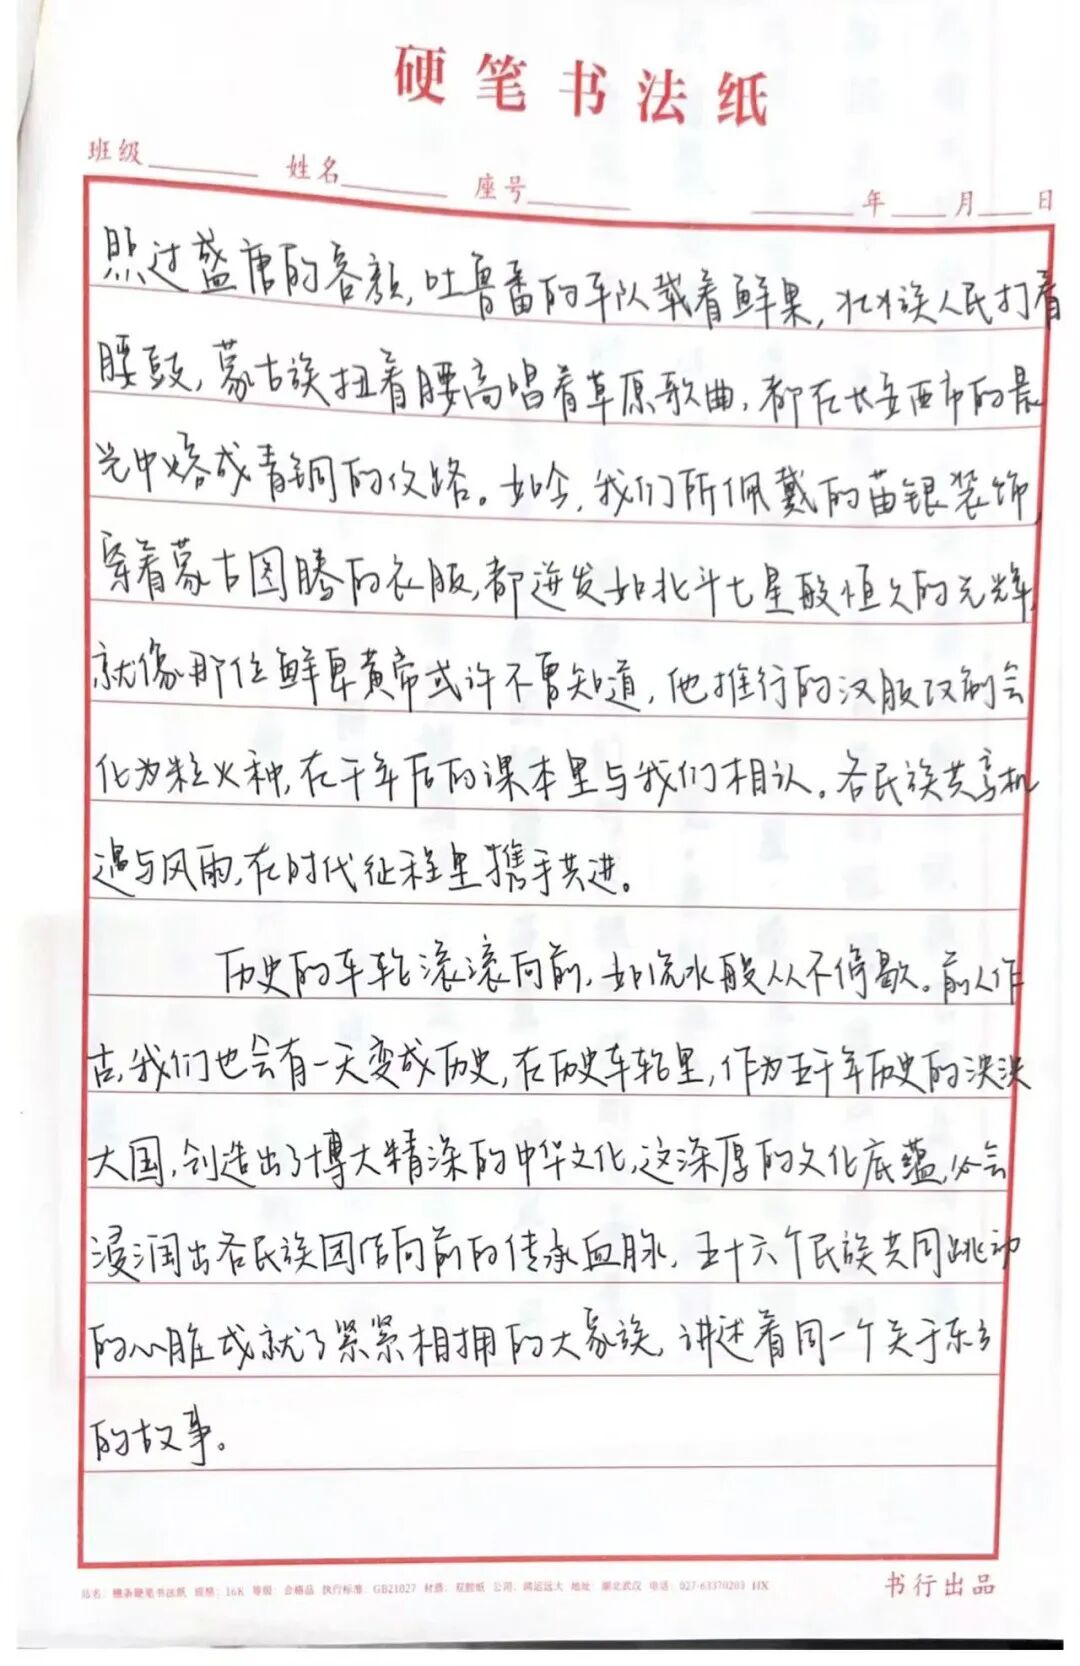 硬笔书法纸
班级 姓名 座号 年 月 日
照过盛唐的容颜,吐鲁番的车队载着鲜果,壮族人民打着
腰鼓,蒙古族扭着腰高唱着草原歌曲,都在长安西市的晨
光中熔成青铜的纹路。如今,我们所佩戴的苗银装饰,
穿着蒙古图腾的衣服,都迸发如北斗七星般恒久的光辉,
就像那位鲜卑黄帝或许不曾知道,他推行的汉服改制会
化为粒火种,在千年后的课本里与我们相认。各民族共享机
遇与风雨,在时代征程里携手共进。
历史的车轮滚滚向前,如流水般从不停歇。前人作
古,我们也会有一天变成历史,在历史车轮里,作为五千年历史的泱泱
大国,创造出了博大精深的中华文化,这深厚的文化底蕴,必会
浸润出各民族团结向前的传承血脉,五十六个民族共同跳动
的心脏成就了紧紧相拥的大家族,讲述着同一个关于东方
的故事。
品名:横条硬笔书法纸 规格:16K 等级:合格品 执行标准:GB21027 材质:双胶纸 公司:鸿运远大 地址:湖北武汉 电话:027-63370203 HX
书行出品